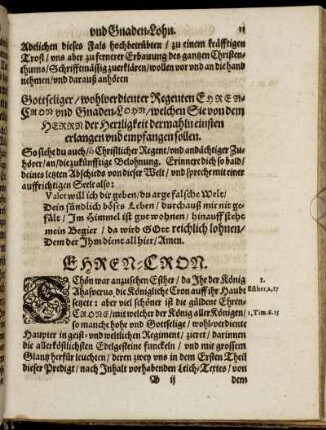 vnd Gnaden-Lohn. 11
Adelichen dieses Fals hochbetrübten / zu einem kräfftigen
Trost / uns aber zu fernerer Erbauung des gantzen Christen-
thums / Schrifftmässig zuerklären / wollen vor und an die hand
nehmen / und darauß anhören
Gottseliger / wohlverdienter Regenten EHREN-
CRON und Gnaden-LOHN / welchen Sie von dem
HERRN der Herrligkeit dermahln einsten
erlangen und empfangen sollen.
So siehe du auch / ô Christlicher Regent / und andächtiger Zu-
hörer / an / die zukünfftige Belohnung. Erinnere dich so bald /
deines letzten Abschieds von dieser Welt / und spreche mit einer
auffrichtigen Seele also:
Valet will ich dir geben / du arge falsche Welt /
Dein sündlich böses Leben / durchauß mir nit ge-
fält / Im Himmel ist gut wohnen / hinauff steht
mein Begier / da wird GOtt reichlich lohnen /
Dem der Ihm dient allhier / Amen.
EHREN-CRON.
SChön war anzusehen Esther / da Ihr der König
Ahasverus die Königliche Cron auff ihr Haubt
setzett: aber viel schöner ist die güldene Ehren-
CRONE / mit welcher der König aller Königen /
so manche hohe und Gottselige / wohlverdiente
Häupter in geist- und weltlichen Regiment / zieret / darinnen
die allerköstlichsten Edelgesteine funckeln / und mit grossem
Glantz herfür leuchten / deren zwey uns in dem Ersten Theil
dieser Predigt / nach Inhalt vorhabenden Leich-Textes / von
B ij dem
I.
Esther 2, 17
1. Tim. 6. 15